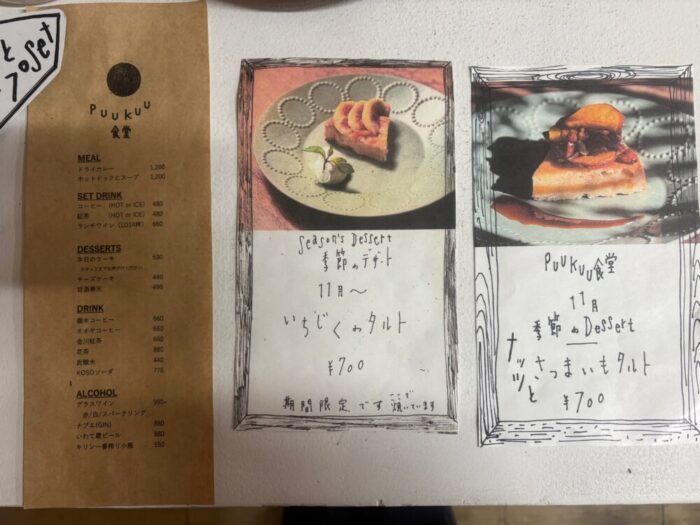 と
70set
PUUKUU
食堂
MEAL
ドライカレー 1,200
ホットドックとスープ 1,200
SET DRINK
コーヒー (HOT or ICE) 480
紅茶 (HOT or ICE) 480
ランチワイン
DESSERTS
本日のケーキ
チーズケーキ
490
DRINK
コーヒー 560
コーヒー 660
紅茶 660
880
炭酸水 440
KOSOソーダ 770
ALCOHOL
グラスワイン
赤/白/スパークリング
(GIN)
いわて蔵ビール 880
キリン一番搾り小瓶 550
Season's Dessert
季節のデザート
11月〜
いちじくのタルト
¥700
期間限定です
PUUKUU食堂
11月
季節のDessert
ナッツと
さつまいもタルト
¥700